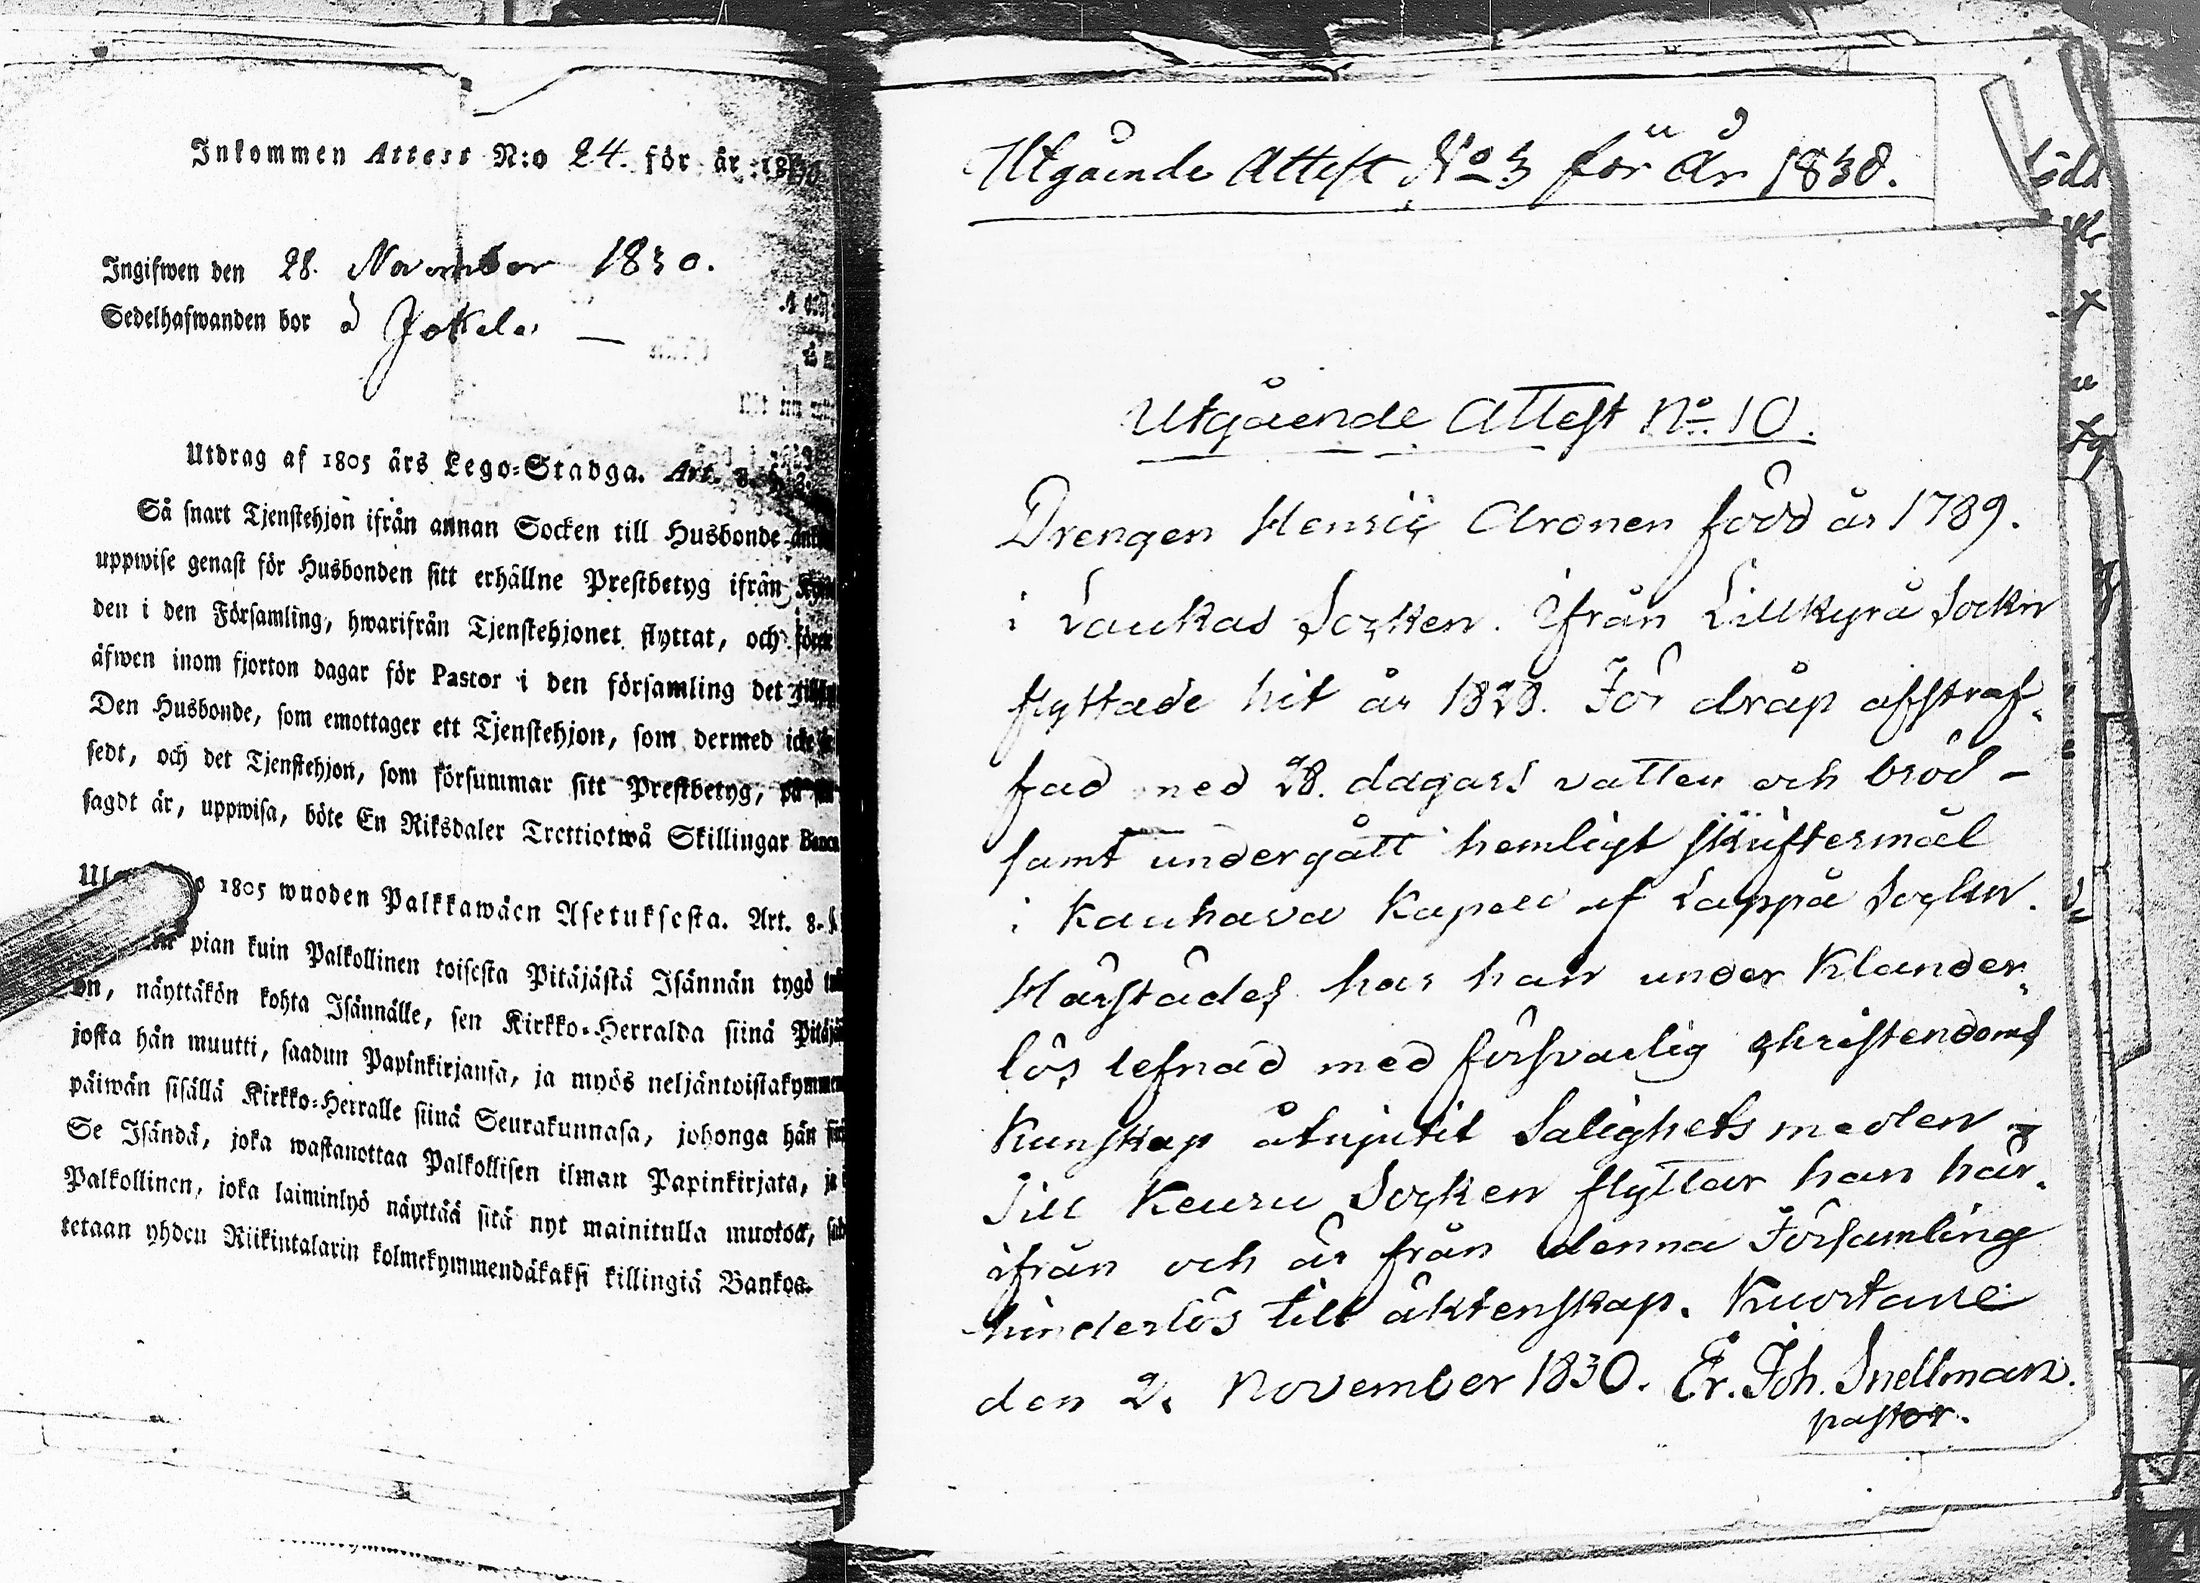 Inkommen Attest N:o 24. för år 1830
Ingifwen den 28. November 1830.
Sedelhafwanden bor å Jokela
Utdrag af 1805 års Lego-Stadga. Art. 8.
Så snart Tjenstehjon ifrån annan Socken till Husbonde
uppwise genast för Husbonden sitt erhållne Prestbetyg ifrån
den i den Församling, hwarifrån Tjenstehjonet flyttat, och
äfwen inom fjorton dagar för Pastor i den församling det
Den Husbonde, som emottager ett Tjenstehjon, som dermed icke
sedt, och det Tjenstehjon, som försummar sitt Prestbetyg, på
sagdt är, uppwisa, böte En Riksdaler Trettiotwå Skillingar Banco
1805 wuoden Palkkawäen Asetuksesta. Art. 8.
pian kuin Palkollinen toisesta Pitäjästä Isännän tygö
on, näyttäkön kohta Isännälle, sen Kirkko-Herralda siinä
josta hän muutti, saadun Papinkirjansa, ja myös neljäntoistakymmen
päiwän sisällä Kirkko-Herralle siinä Seurakunnasa, johonga hän
Se Isändä, joka wastanottaa Palkollisen ilman Papinkirjata,
Palkollinen, joka laiminlyö näyttää sitä nyt mainitulla muotoa,
tetaan yhden Riikintalarin kolmekymmendäkaksi killingiä Bankoa.
Utgående Attest No 3 för år 1830.
Utgående Attest No. 10.
Drengen Henric Aronen född år 1789.
i Laukas Socken. Ifrån Lillkyrå Sockn
flyttade hit år 1828. För dråp afstraf-
fad med 28. dagars vatten och bröd -
samt undergått hemligt skriftermål
i Kauhava Kapell af Lappå Socken.
Härstädes har han under klander-
lös lefnad med försvarlig christendoms
Kunskap åtnjutit Salighets medlen
Till Keuru Socken flyttar han här-
ifrån och är från denna Församling
hinderlös till äktenskap. Kuortane
den 2. November 1830. Er. Joh. Snellman.
pastor.